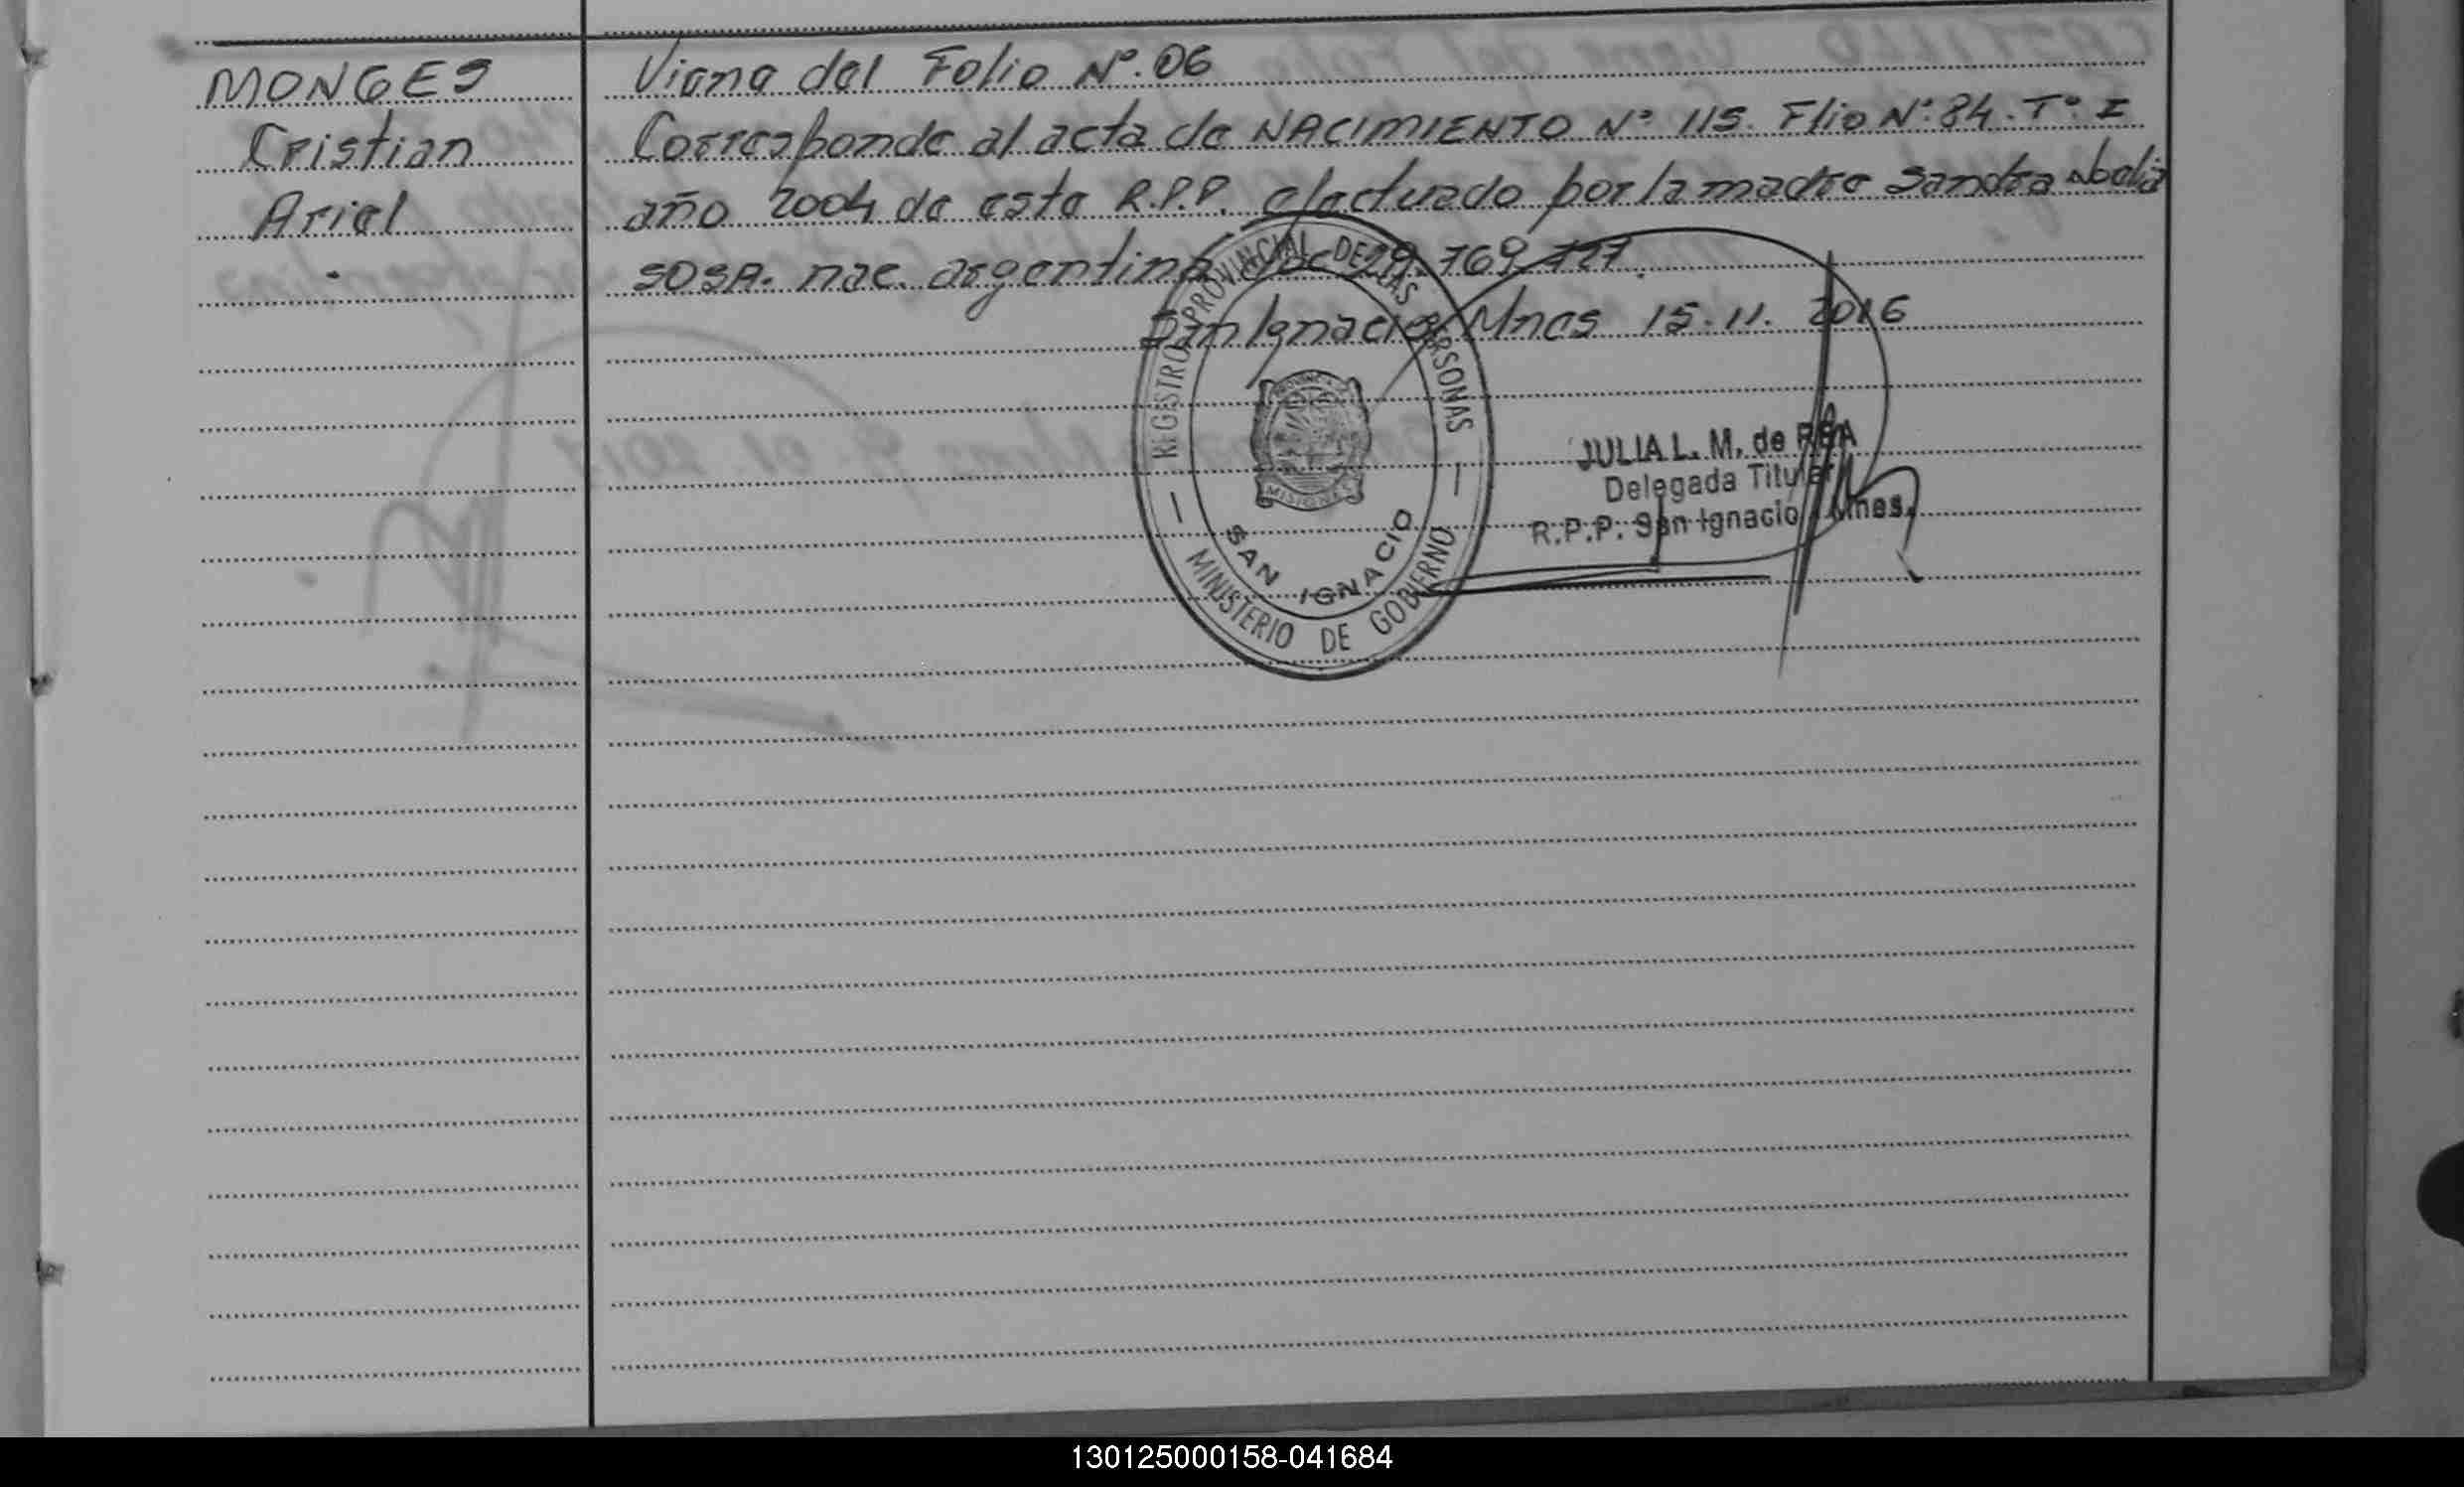 MONGES
Cristian
Ariel
Viene del Folio Nº. 06
Corresponde al acta de NACIMIENTO Nº 115. Flio Nº: 84. Tº: I
año 2004 de este R.P.P. efectuado por la madre Sandra Noelia
SOSA. nac. argentina 29.769.727.
San Ignacio Mnes 15.11.2016
REGISTRO PROVINCIAL DE LAS PERSONAS
MISIONES
SAN IGNACIO
MINISTERIO DE GOBIERNO
JULIA L. M. de
Delegada Titular
R.P.P. San Ignacio Mnes.
130125000158-041684